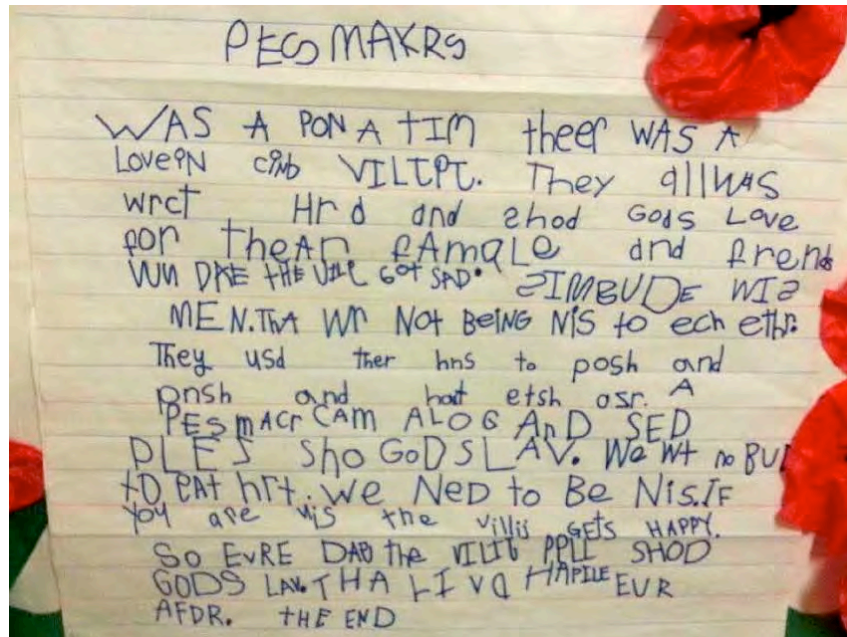 PECS MAKRS
WAS A PON A TIM theer WAS A
LoveiN ciNb VILIPI. They allWAS
wrct Hrd and shod Gods Love
for theAr fAmaLe and frends
WUN DAE THE VILL GOT SAD. SIMBUDE WIS
MEN. ThA Wr Not BeiNG NiS to ech ethr.
They usd ther hns to posh and
pnsh and hat etsh osr. A
PES mACr CAM ALOG AnD SED
PLES Sho GoD S LAV. We Wt no BUD
tO eAt hrt. we NeD to Be Nis. IF
you are nis the villis GETS HAPPY.
So EvRE DAB the VILIG PPLE SHOD
GODS LAV. THA LIVD HAPILE EVR
AFDR. tHE END